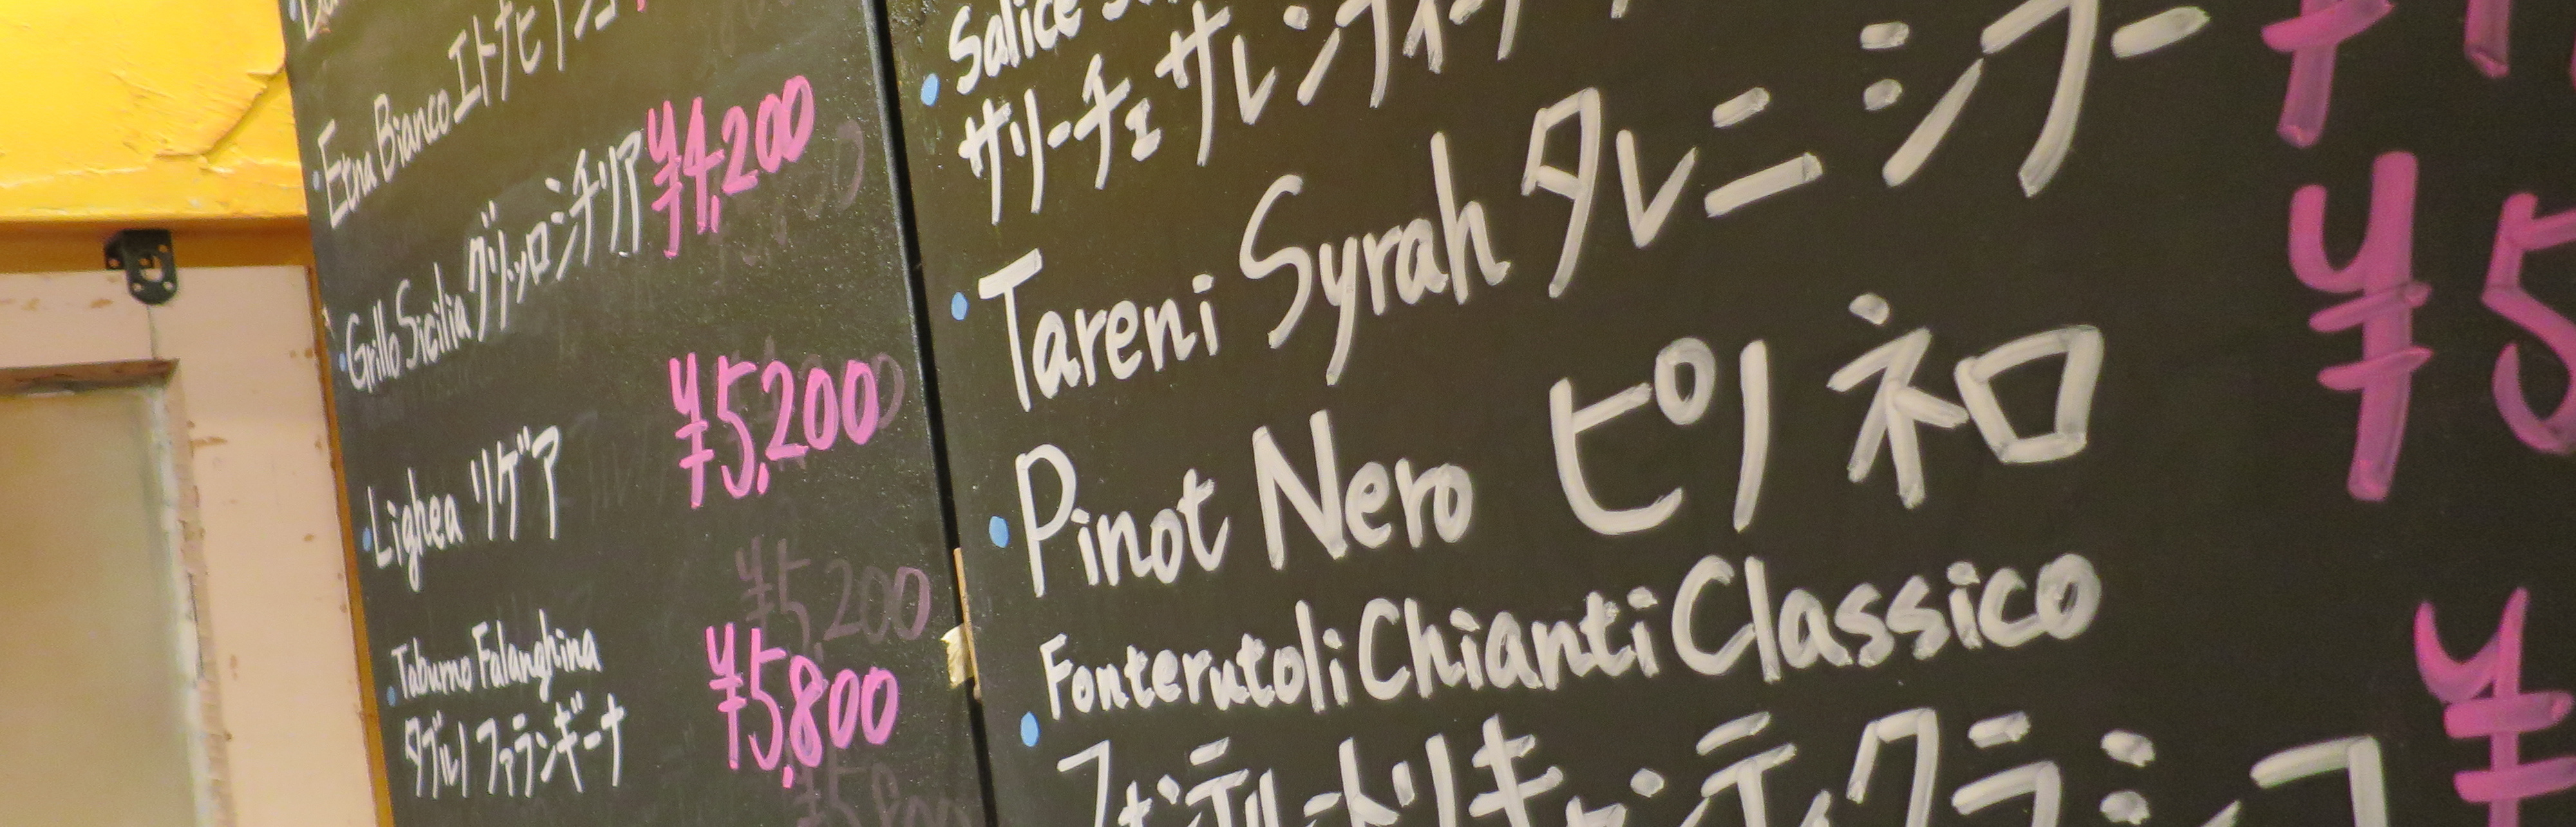 Etna Bianco エトナビアンコ
Grillo Sicilia グリッロシチリア ¥4,200
Lighea リゲア ¥5,200
Taburno Falanghina
タブルノ ファランギーナ ¥5,800
Salice
サリーチェ サレンティーノ
Tareni Syrah タレニ シラー
Pinot Nero ピノ ネロ ¥5
Fonterutoli Chianti Classico
フォンテルートリ キャンティ クラシコ ¥